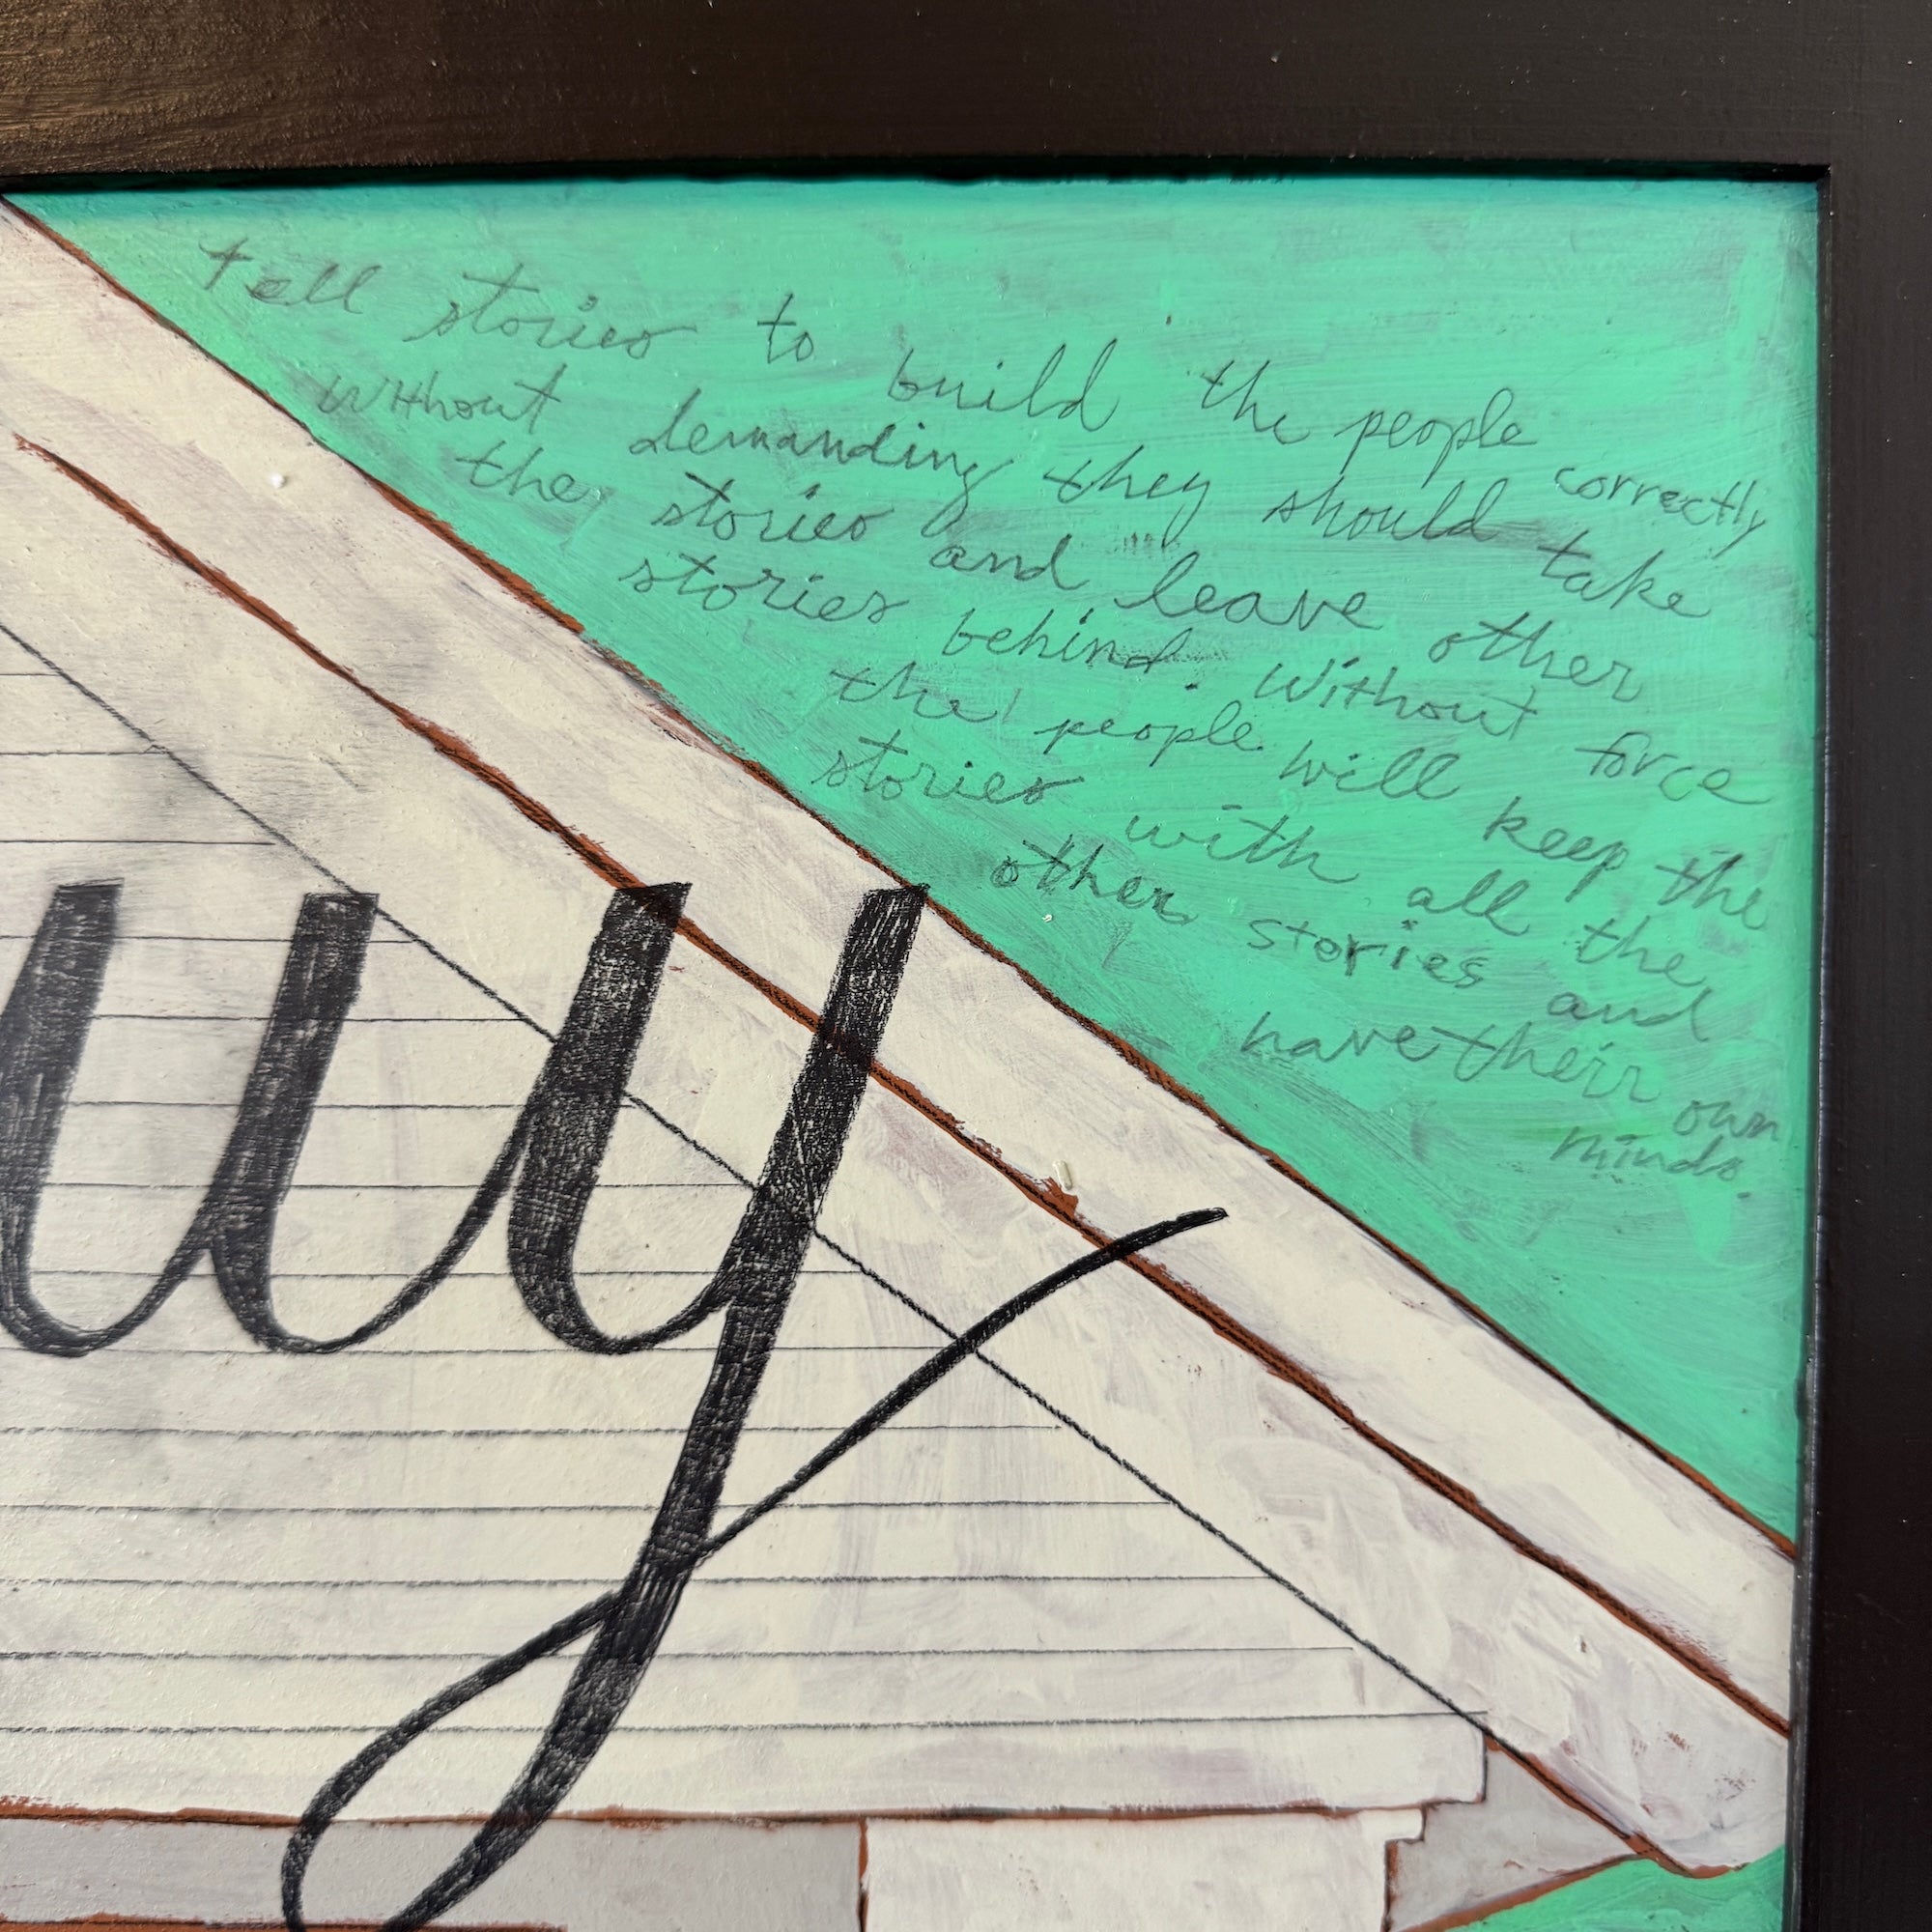 tell stories to build the people correctly
without demanding they should take
the stories and leave other
stories behind. Without force
the people will keep the
stories with all the
other stories and
have their own
minds.
uy